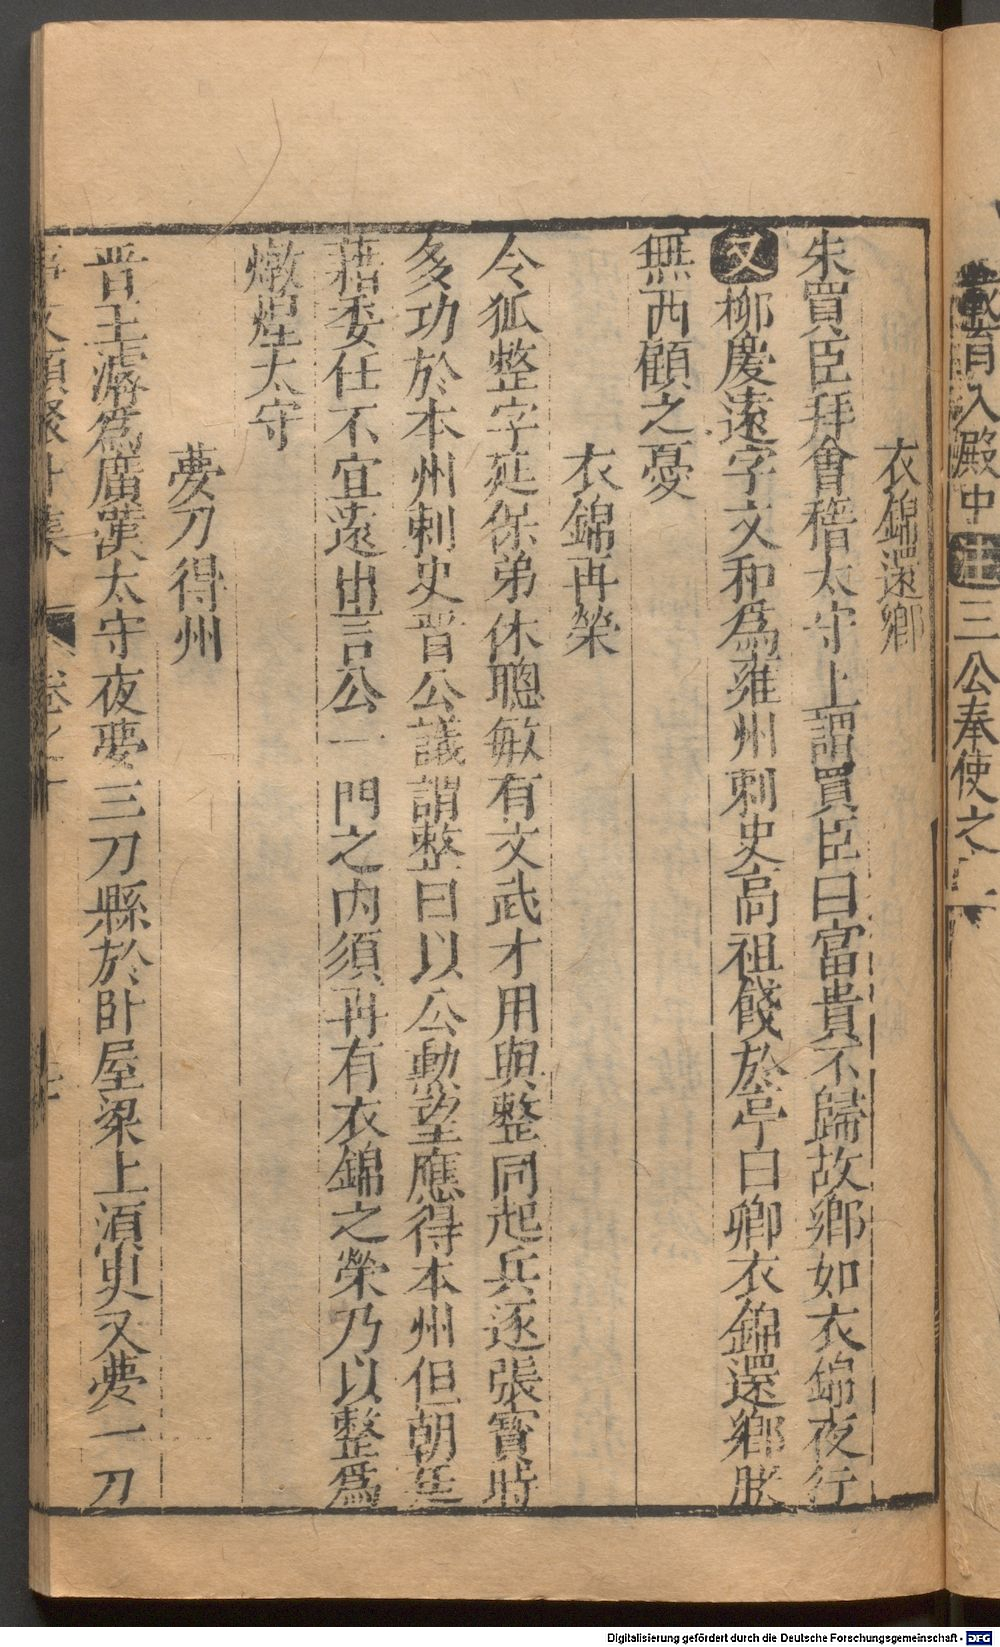 載育入殿中注三公奉使之
衣錦還鄉
朱買臣拜會稽太守上謂買臣曰富貴不歸故鄉如衣錦夜行
又柳慶遠字文和為雍州刺史高祖餞於亭曰卿衣錦還鄉朕
無西顧之憂
衣錦再榮
令狐整字延保弟休聰敏有文武才用與整同起兵逐張寳時
多功於本州刺史晋公議謂整曰以公勲望應得本州但朝廷
藉委任不宜遠出言公一門之内須再有衣錦之榮乃以整爲
燉煌太守
夢刀得州
晋王濬爲廣漢太守夜夢三刀縣於卧屋梁上湏臾又夢一刀
事文類聚卄集 卷之十
Digitalisierung gefördert durch die Deutsche Forschungsgemeinschaft - DFG